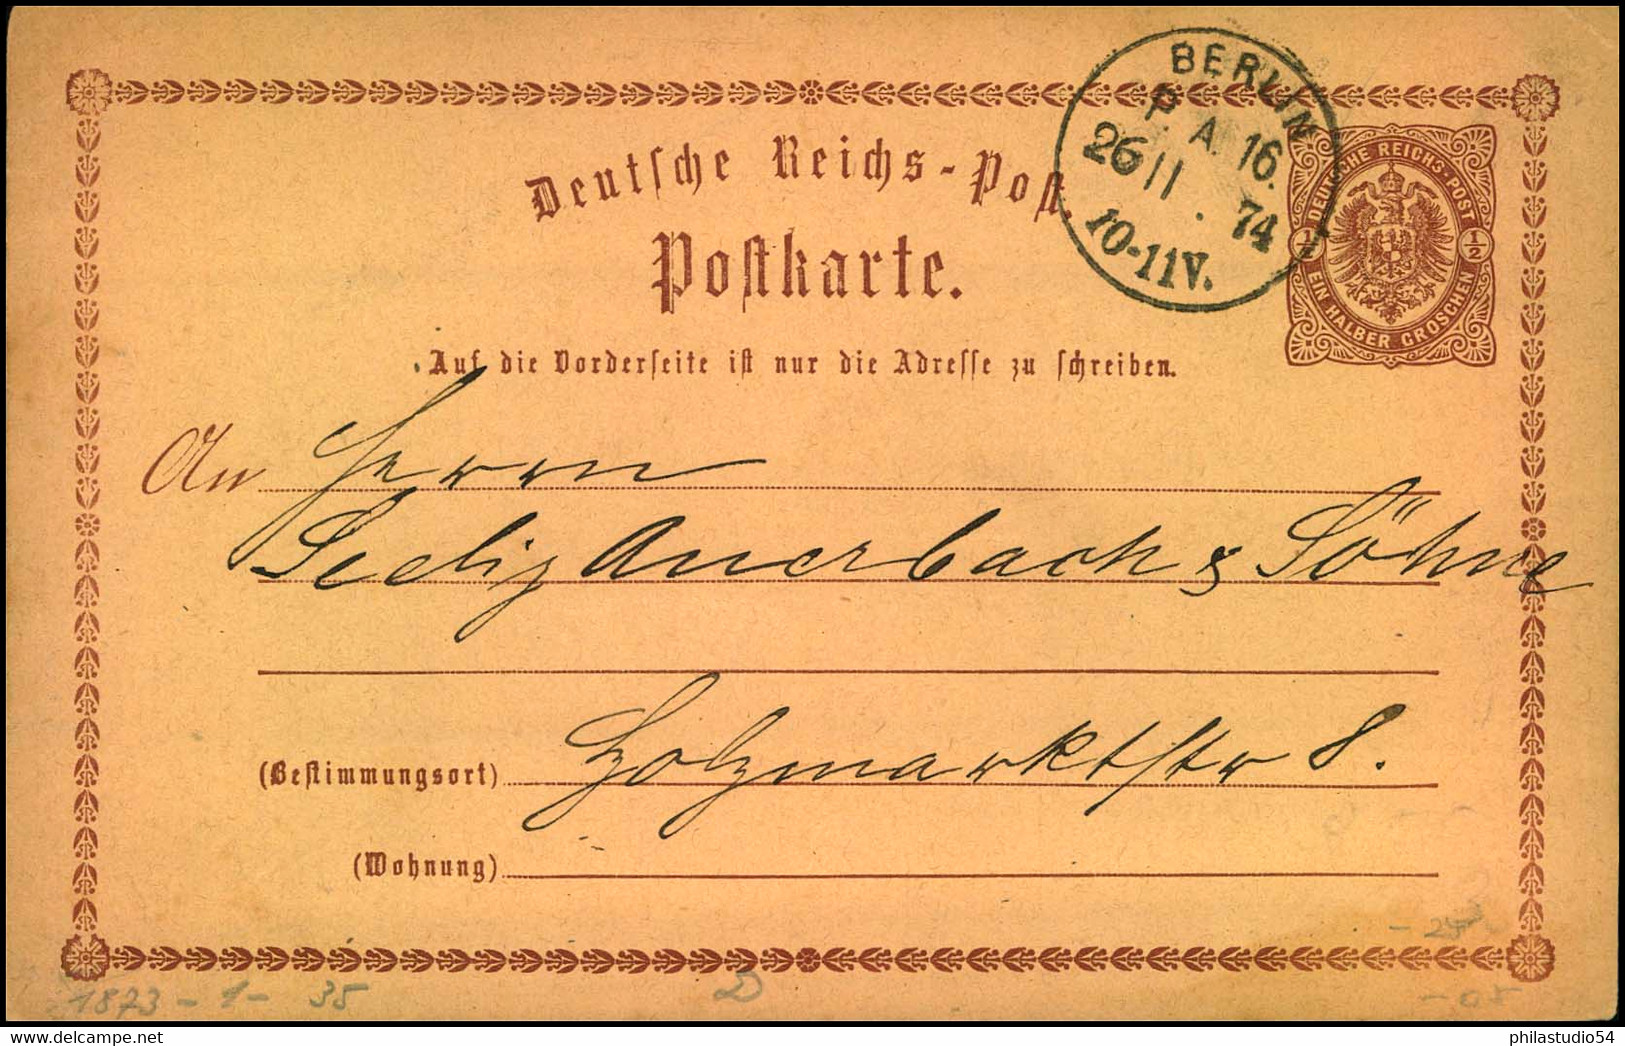 BERLIN
P. A. 16.
26 11 . 74
10-11V.
DEUTSCHE REICHS-POST
1/2 1/2
EIN HALBER GROSCHEN
Deutſche Reichs-Poſt.
Poſtkarte.
Auf die Vorderſeite iſt nur die Adreſſe zu ſchreiben.
An Herrn
Seelig Auerbach & Söhne
(Beſtimmungsort) Holzmarktstr 8.
(Wohnung)
1873 - 1 - 35
philastudio54